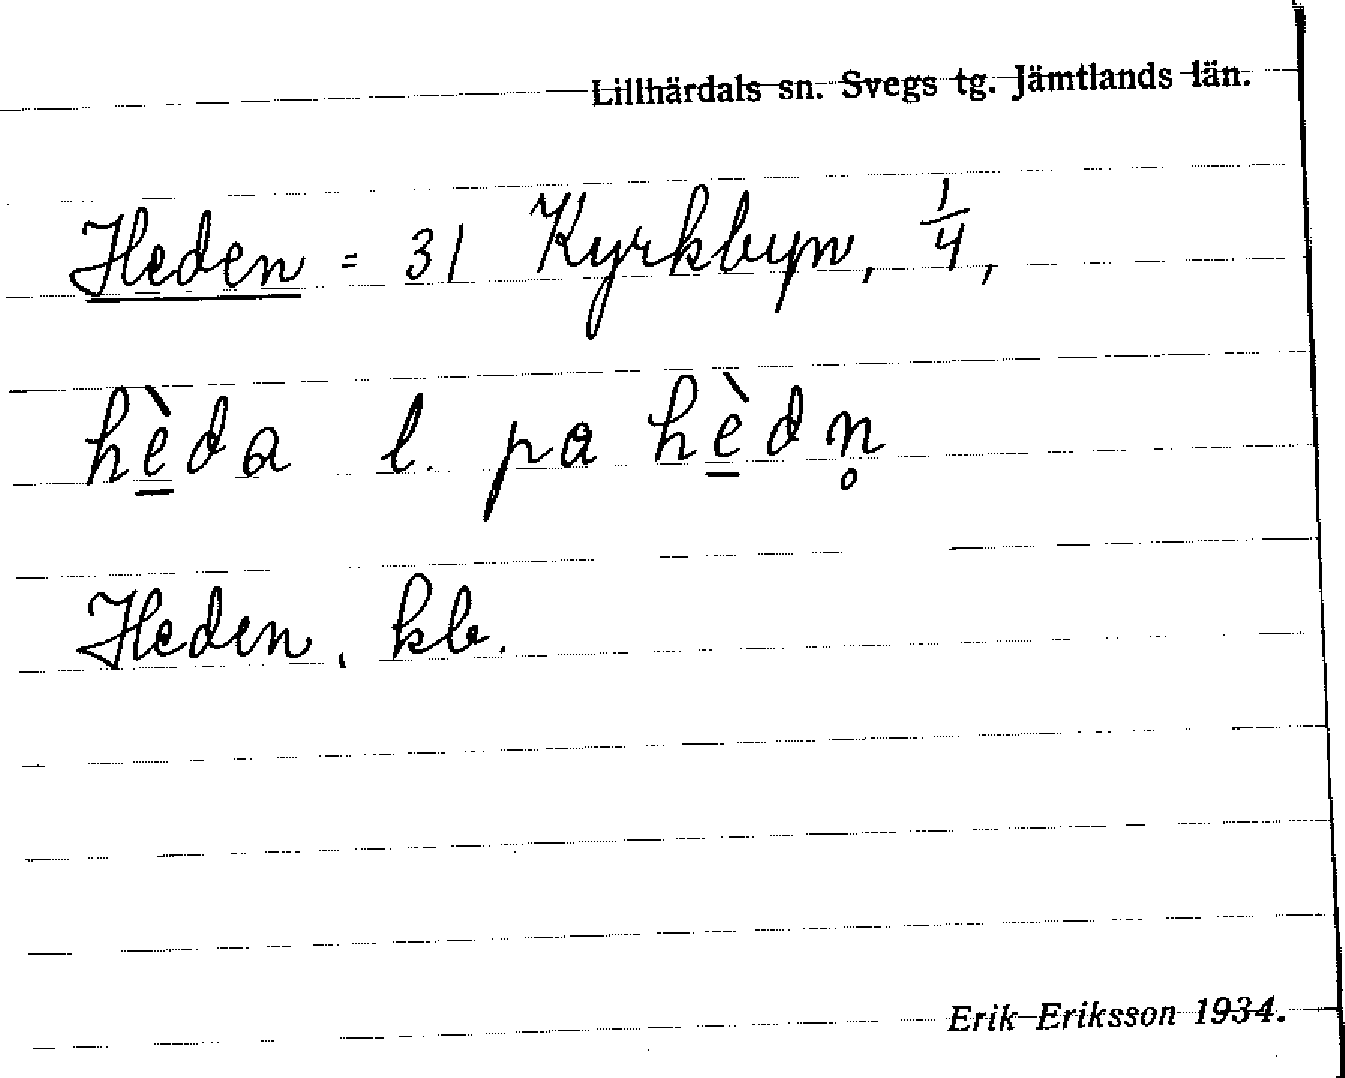 Lillhärdals sn. Svegs tg. Jämtlands län.
Heden = 31 Kyrkbyn, 1/4,
hè̱da l. pa hè̱dn̥
Heden, kb.
Erik Eriksson 1934.